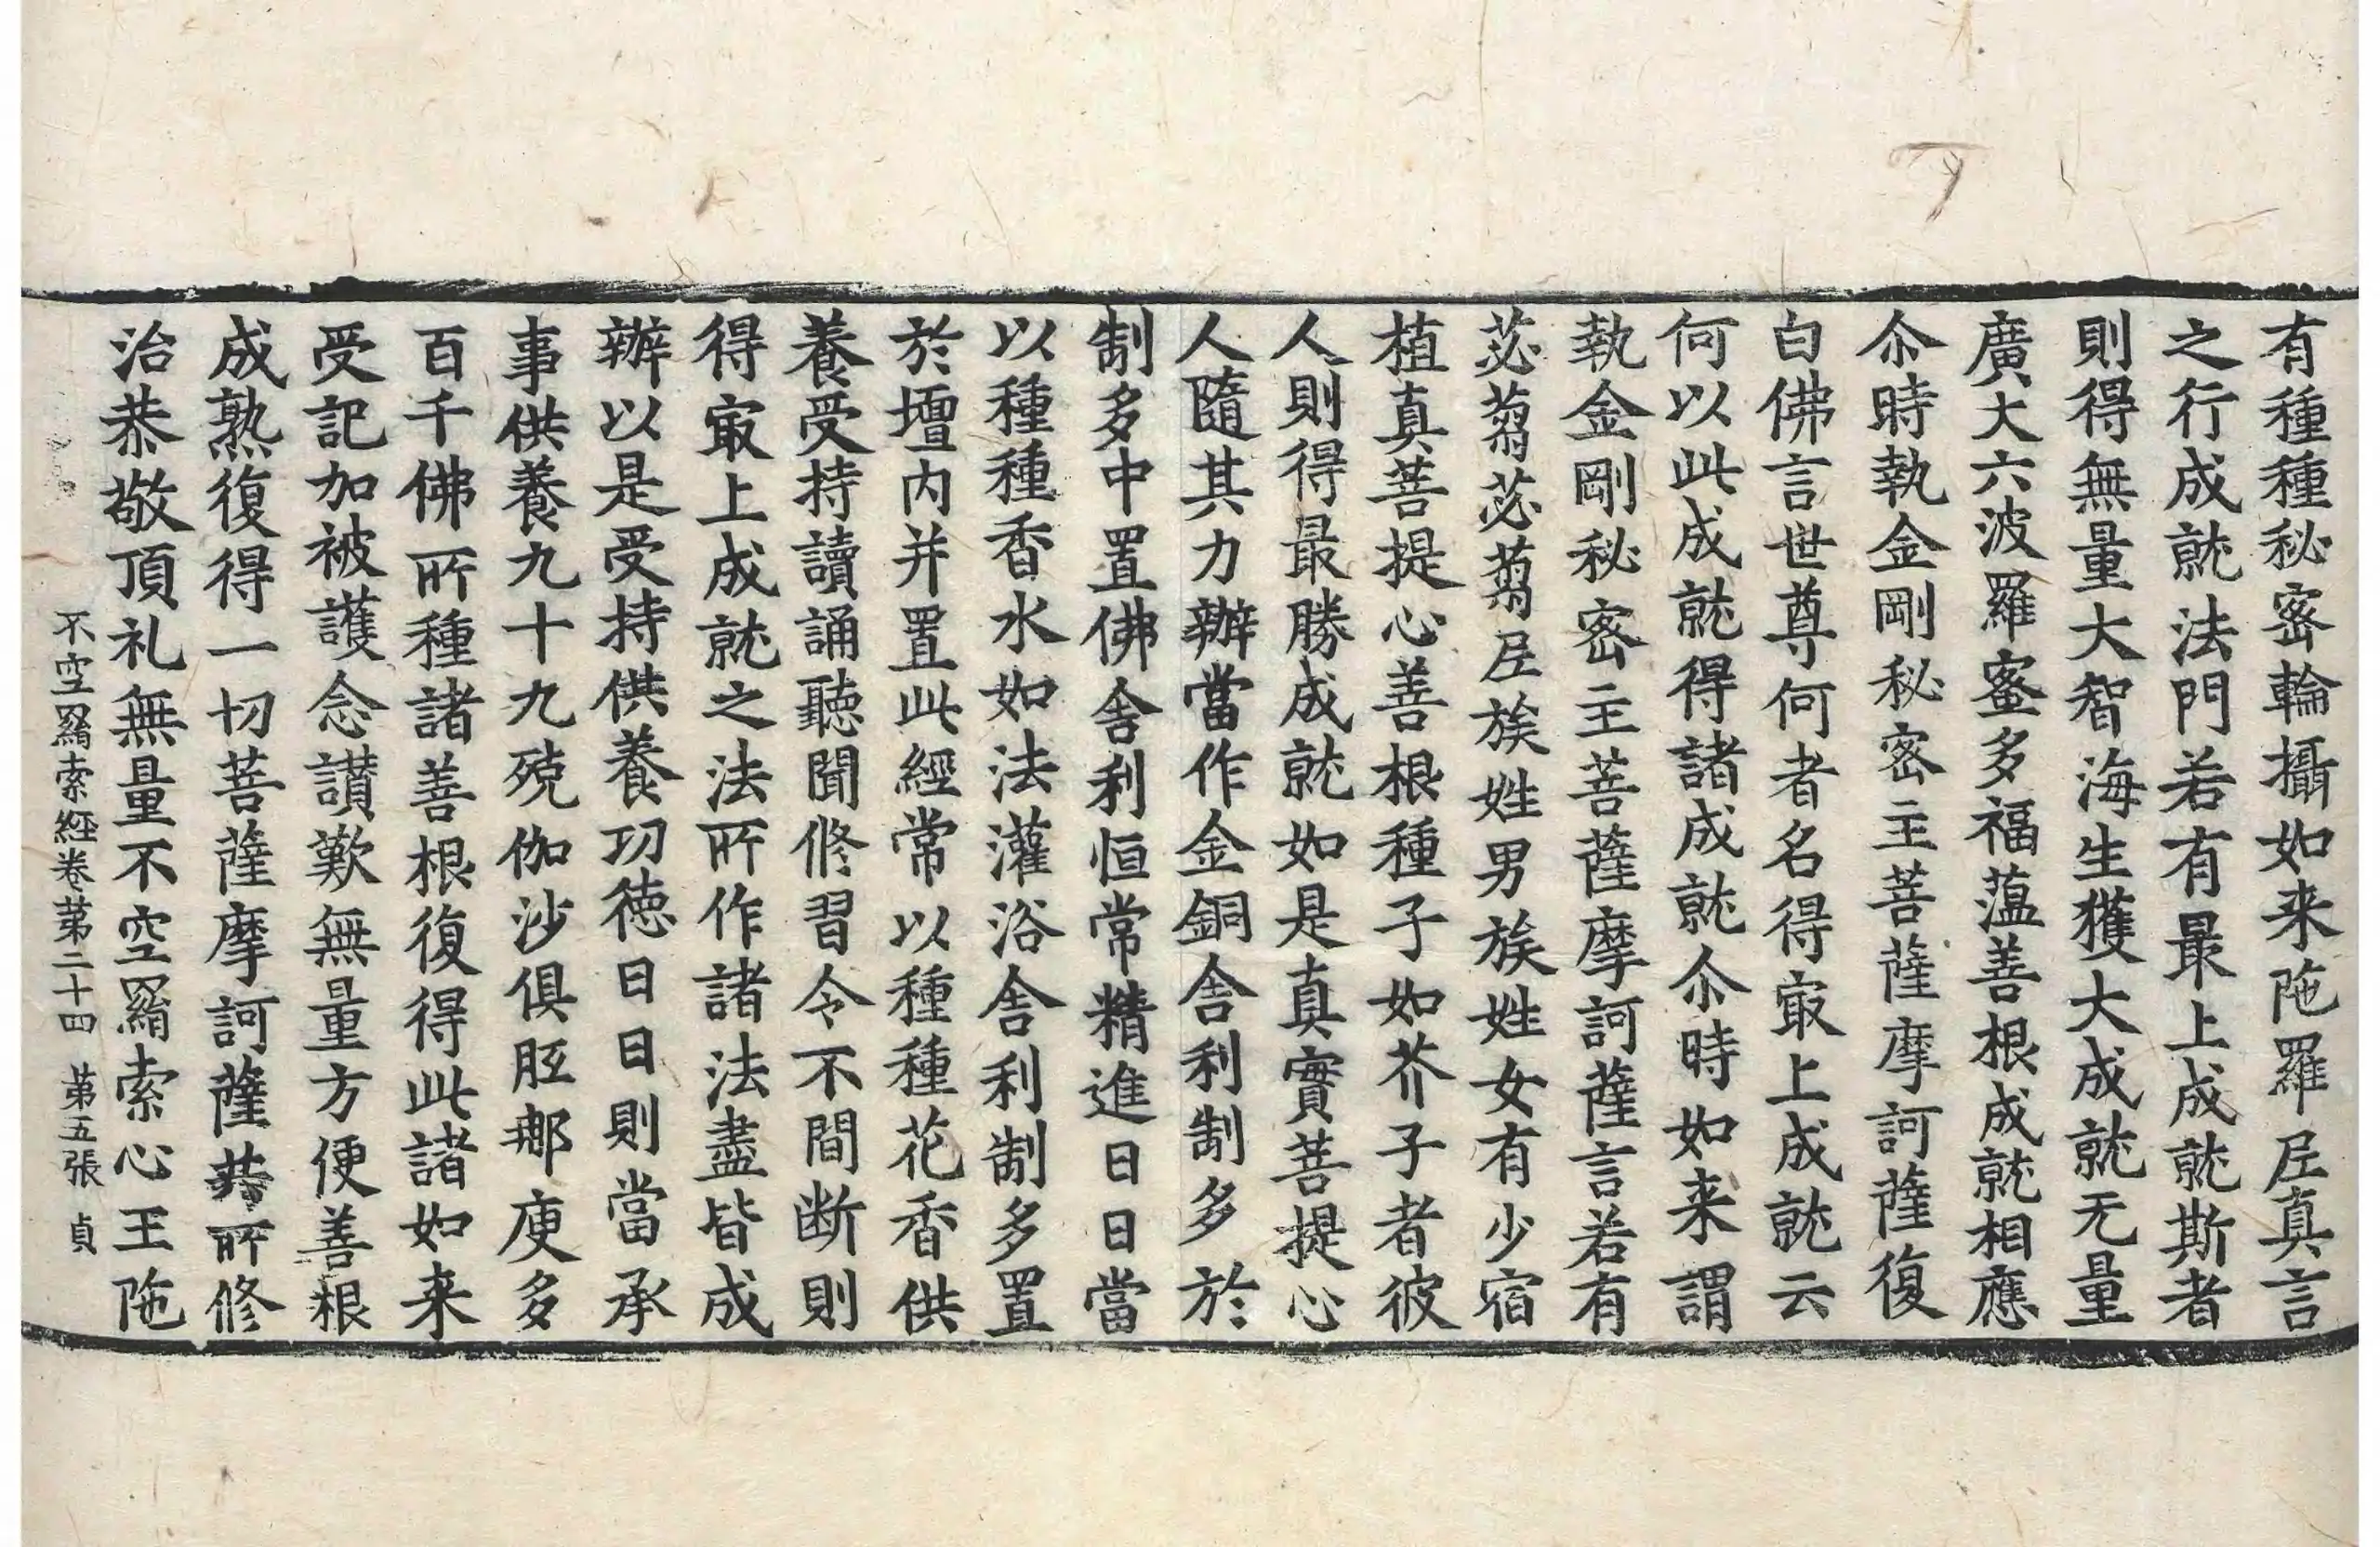 有種種秘密輪攝如来陁羅𡰱真言
之行成就法門若有最上成就斯者
則得無量大智海生獲大成就无量
廣大六波羅蜜多福薀善根成就相應
尒時執金剛秘密主菩薩摩訶薩復
白佛言世尊何者名得㝡上成就云
何以此成就得諸成就尒時如来謂
執金剛秘密主菩薩摩訶薩言若有
苾蒭苾蒭𡰱族姓男族姓女有少宿
植真菩提心善根種子如芥子者彼
人則得最勝成就如是真實菩提心
人隨其力辦當作金銅舎利制多於
制多中置佛舎利恒常精進日日當
以種種香水如法灌浴舎利制多置
於壇内并置此經常以種種花香供
養受持讀誦聽聞修習令不間断則
得㝡上成就之法所作諸法盡皆成
辦以是受持供養功徳日日則當承
事供養九十九殑伽沙俱胝那庾多
百千佛所種諸善根復得此諸如来
受記加被護念讃歎無量方便善根
成熟復得一切菩薩摩訶薩薩所修
治恭敬頂礼無量不空羂索心王陁
不空羂索經卷第二十四 第五張 貞